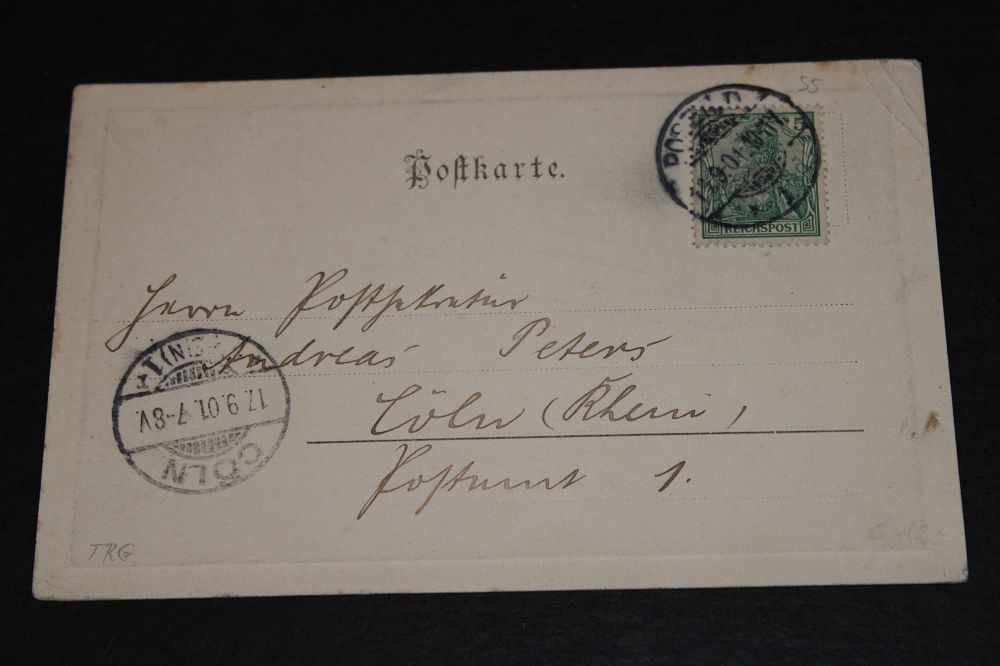 55
Postkarte.
5
REICHSPOST
Herrn Postsekretär
Andreas Peters
Cöln (Rhein)
Postamt 1.
17.9.01.7-8V.
CÖLN
TRG